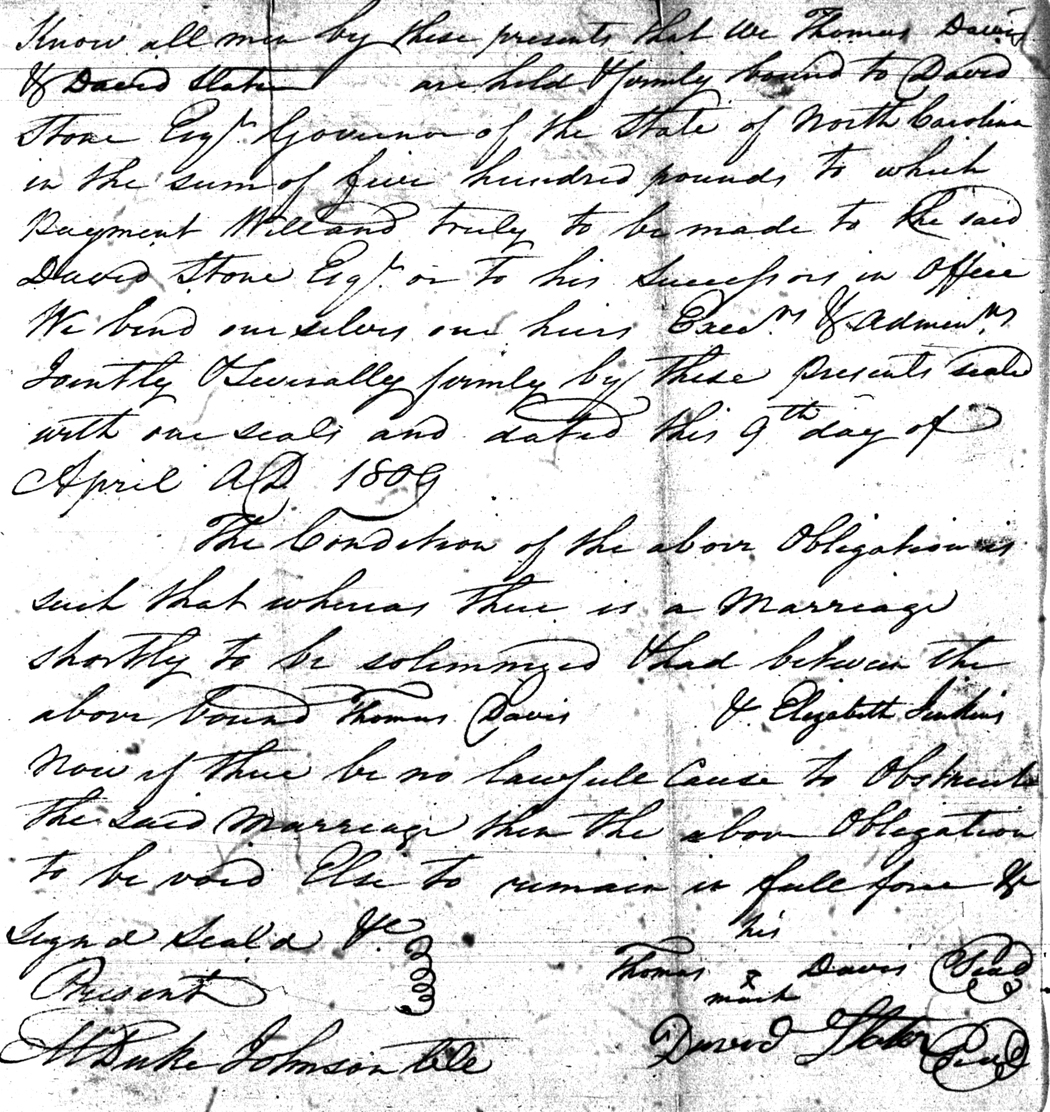 Know all men by these presents that we Thomas Davis
& David Slater are held & firmly bound to David
Stone Esqr. Governor of the State of North Carolina
in the sum of five hundred pounds to which
Payment Well and truly to be made to the said
David Stone Esqr. or to his Successors in Office
We bend ourselves our heirs Execrs & Adminrs
Jointly & Severally firmly by these presents seald
with our seals and dated this 9th day of
April AD 1809
The Condition of the above Obligation is
such that whereas there is a Marriage
shortly to be solemnized & had between the
above bound Thomas Davis & Elizabeth Jinkins
Now if there be no lawfull Cause to Obstruct
the said Marriage then the above Obligation
to be void Else to remain in full force &
Signd Seal'd &c
his
Present
Thomas x Davis Seal
mark
M Duke Johnson
David Slater Seal